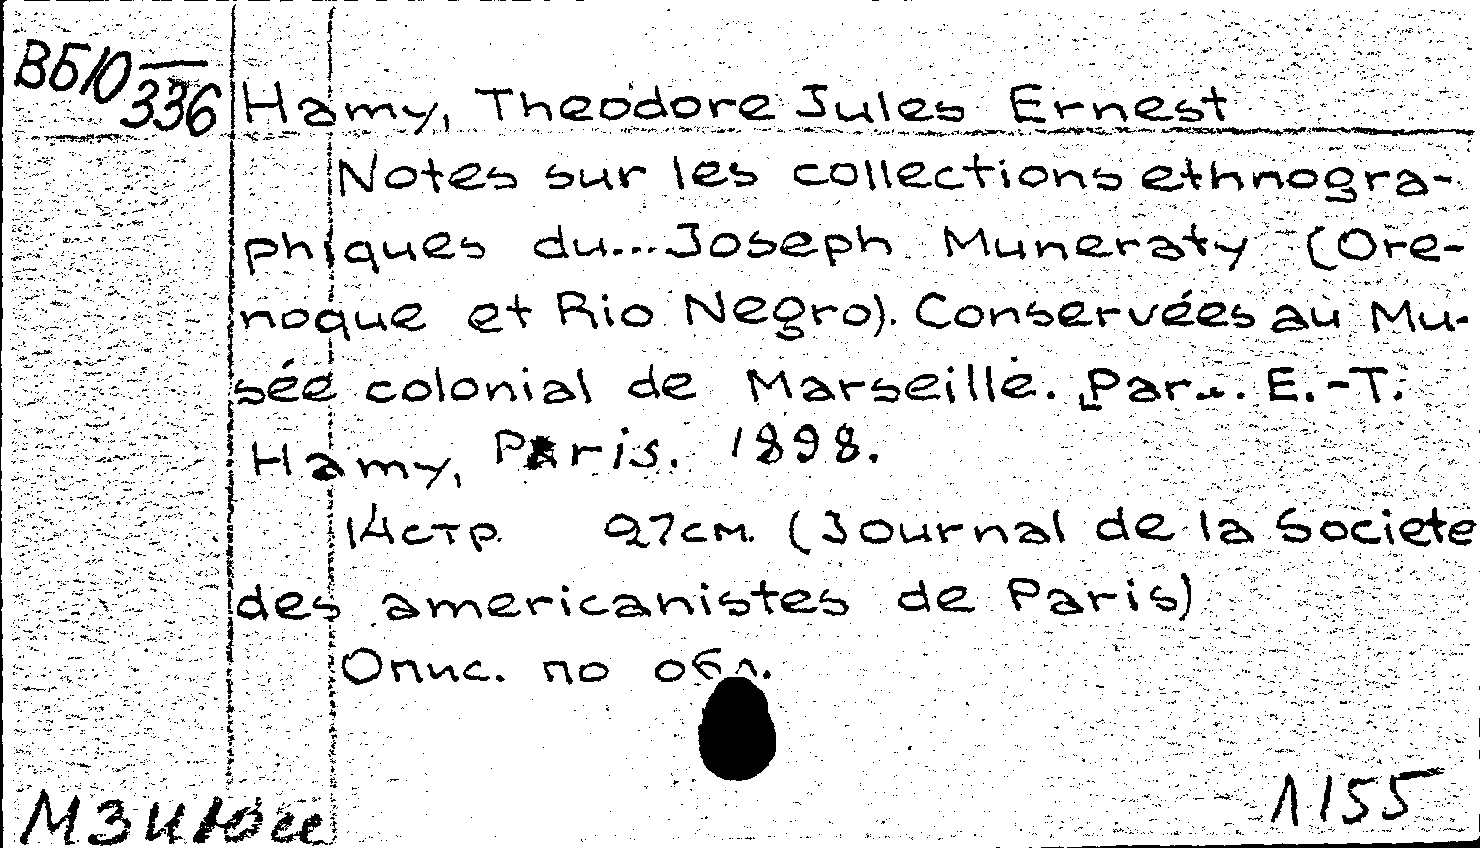 ВБЮ
336
Hamy, Theodore Jules Ernest
Notes sur les collections ethnogra-
phiques du...Joseph Muneraty (Ore-
noque et Rio Negro). Conservées au Mu-
sée colonial de Marseille. Par... E.-T.
Hamy, Paris. 1898.
14стр. 27см. (Journal de la Societe
des americanistes de Paris)
Опис. по обл.
1155